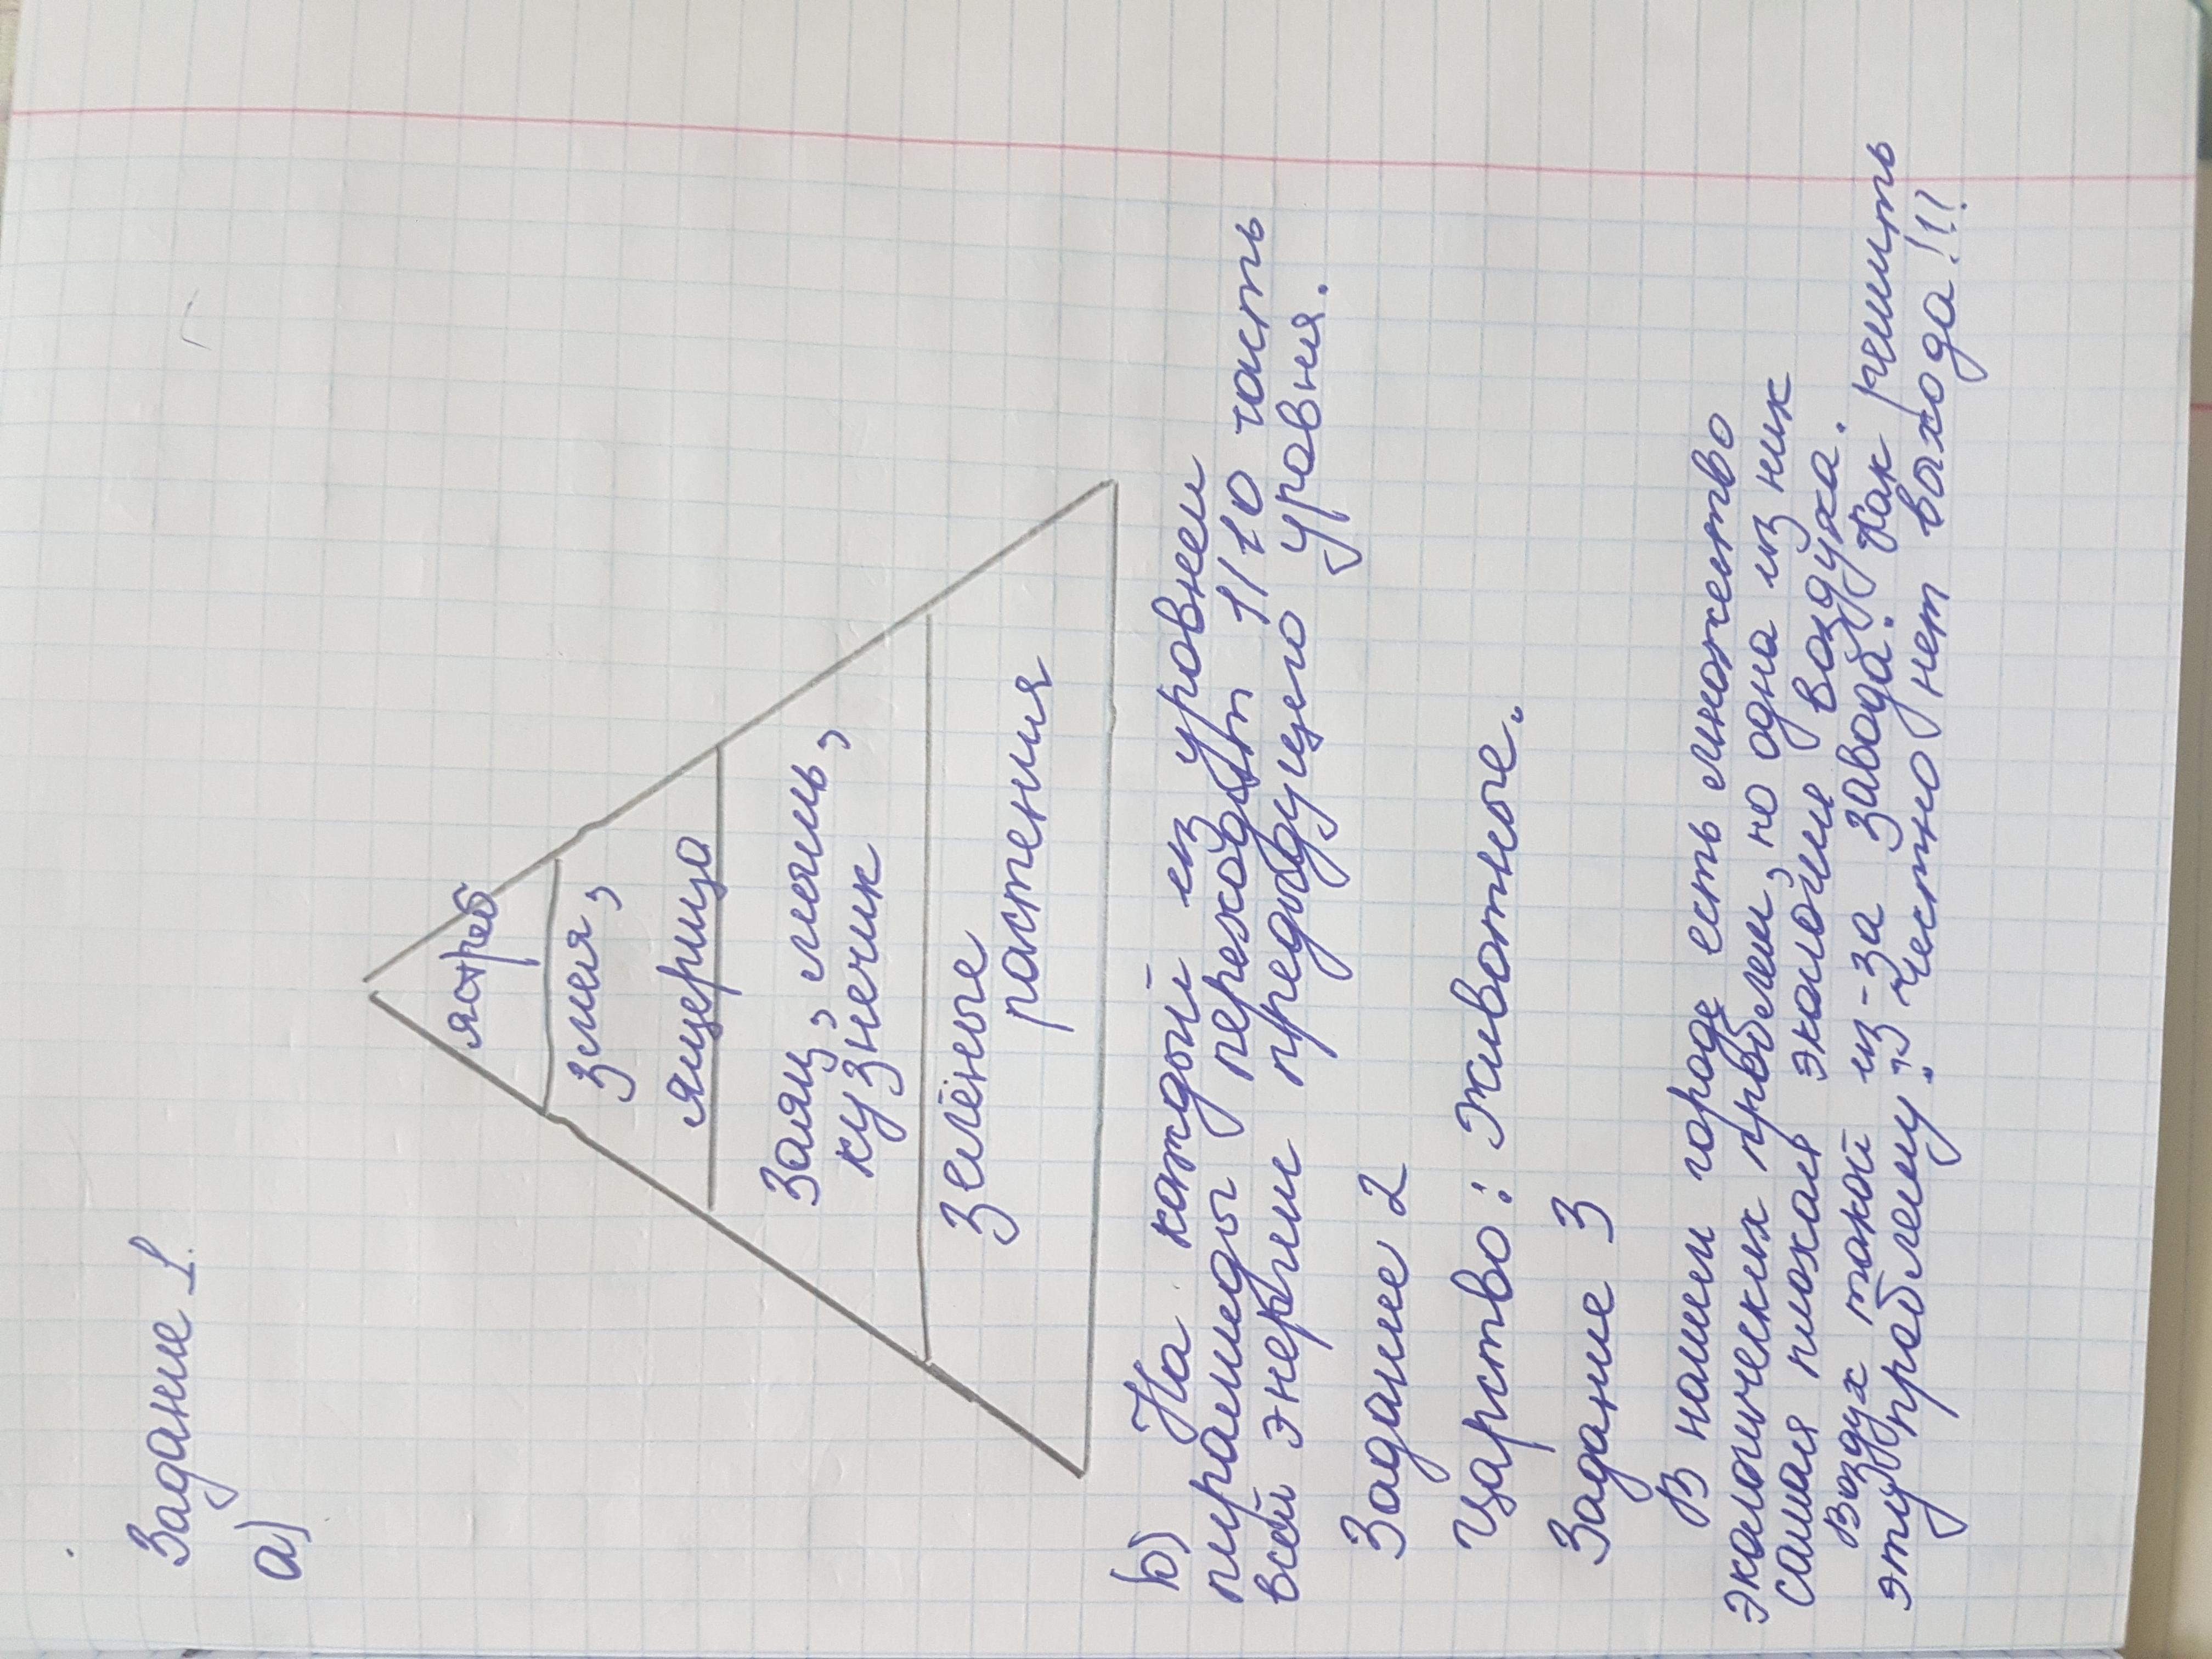 Задание 1.
а)
ястреб
змея,
ящерица
Заяц, мышь,
кузнечик
Зелёные
растения
b) На каждый из уровней
пирамиды переходит 1/10 часть
всей энергии предыдущего уровня.
Задание 2
Царство: Животные.
Задание 3
В нашем городе есть множество
экалогических проблем, но одна из них
самая плохая экалогия воздуха.
Воздух такой из-за завода. Как решить
эту проблему? Честно нет выхода!!!